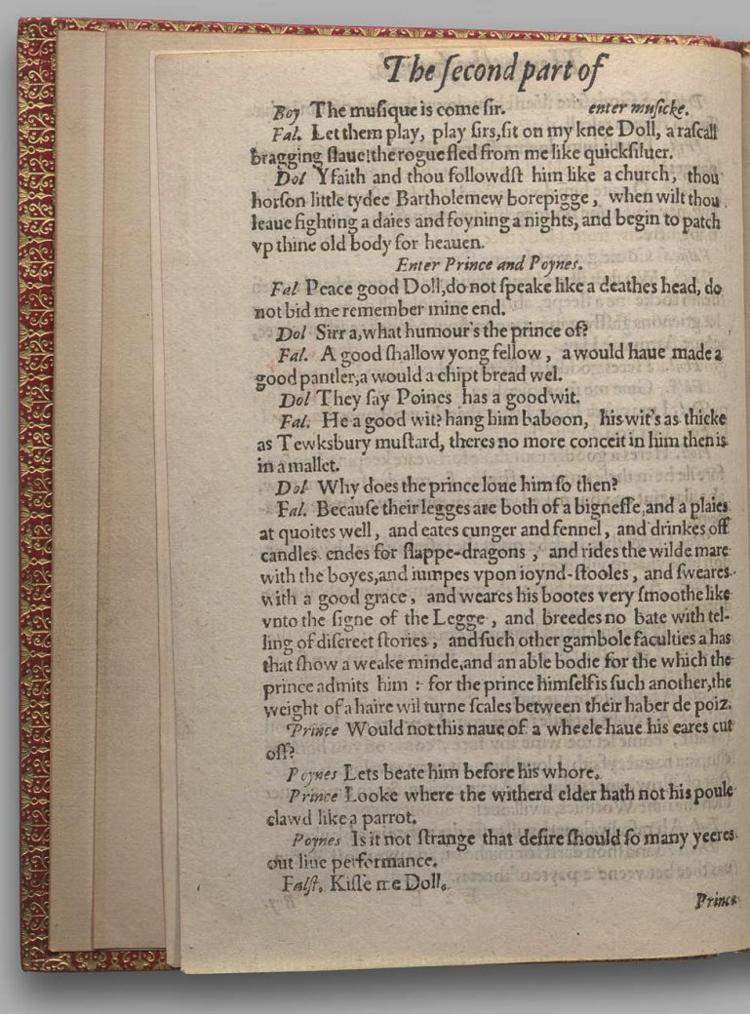 The ſecond part of
Boy The muſique is come ſir. enter muſicke.
Fal. Let them play, play ſirs, ſit on my knee Doll, a raſcall
bragging ſlaue! the rogue fled from me like quickſiluer.
Dol Yfaith and thou followdſt him like a church, thou
horſon little tydee Bartholemew borepigge, when wilt thou
leaue fighting a daies and foyning a nights, and begin to patch
vp thine old body for heauen.
Enter Prince and Poynes.
Fal Peace good Doll, do not ſpeake like a deathes head, do
not bid me remember mine end.
Dol Sirra, what humour's the prince of?
Fal. A good ſhallow yong fellow, a would haue made a
good pantler, a would a chipt bread wel.
Dol They ſay Poines has a good wit.
Fal. He a good wit? hang him baboon, his wit's as thicke
as Tewksbury muſtard, theres no more conceit in him then is
in a mallet.
Dol Why does the prince loue him ſo then?
Fal. Becauſe their legges are both of a bigneſſe, and a plaies
at quoites well, and eates cunger and fennel, and drinkes off
candles endes for flappe-dragons, and rides the wilde mare
with the boyes, and iumpes vpon ioynd-ſtooles, and ſweares
with a good grace, and weares his bootes very ſmoothe like
vnto the ſigne of the Legge, and breedes no bate with tel-
ling of diſcreet ſtories, and ſuch other gambole faculties a has
that ſhow a weake minde, and an able bodie for the which the
prince admits him : for the prince himſelf is ſuch another, the
weight of a haire wil turne ſcales between their haber de poiz.
Prince Would not this naue of a wheele haue his eares cut
off?
Poynes Lets beate him before his whore.
Prince Looke where the witherd elder hath not his poule
clawd like a parrot.
Poynes Is it not ſtrange that deſire ſhould ſo many yeeres
out liue performance.
Falſt. Kiſſe me Doll.
Prince